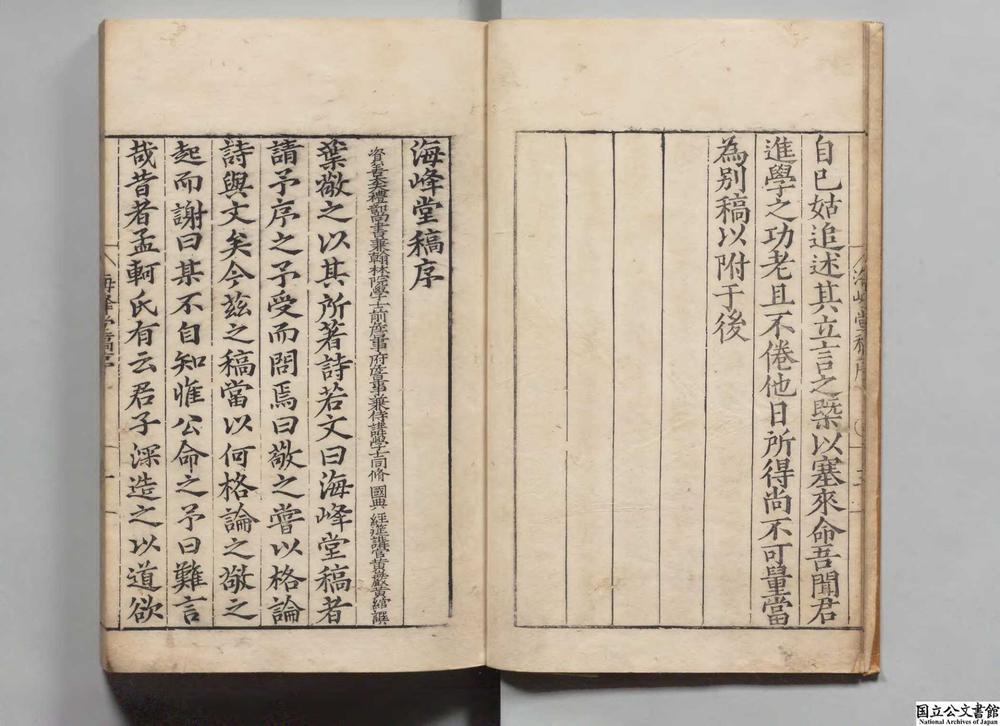 自已姑追述其立言之槩以塞來命吾聞君
進學之功老且不倦他日所得尚不可量當
為別稿以附于後
海峰堂稿序
資善大夫禮部尚書兼翰林院學士前詹事府詹事兼侍講學士同修 國典 經筵講官黄巖黄綰譔
葉敬之以其所著詩若文曰海峰堂稿者
請予序之予受而問焉曰敬之嘗以格論
詩與文矣今玆之稿當以何格論之敬之
起而謝曰某不自知惟公命之予曰難言
哉昔者孟軻氏有云君子深造之以道欲
海峰堂稿序
国立公文書館
National Archives of Japan